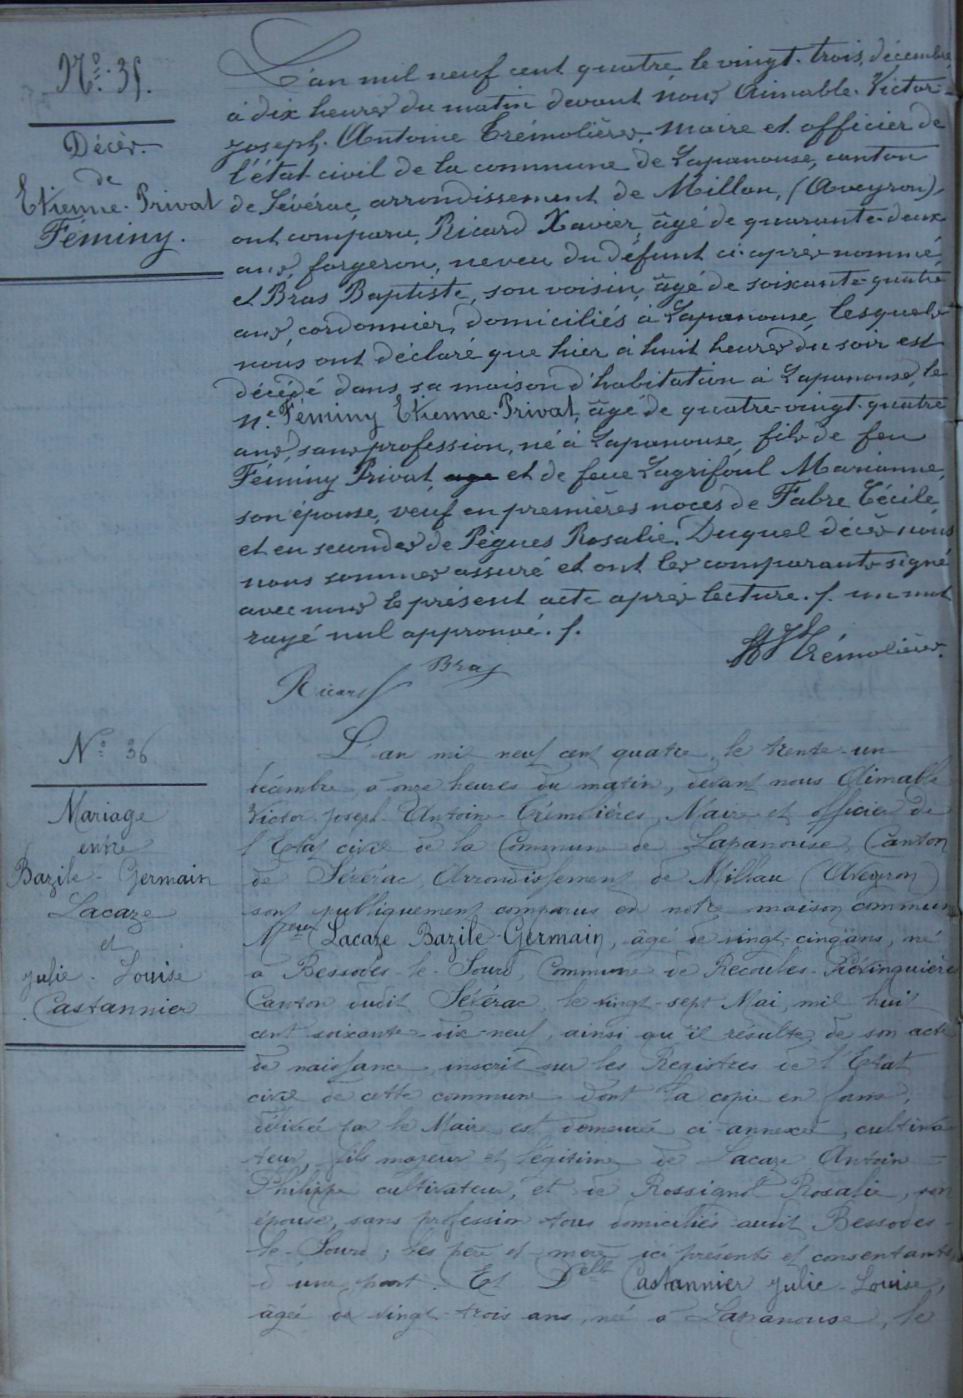 N.º 35.
Décès
de
Etienne-Privat
Féminy.
L'an mil neuf cent quatre, le vingt-trois décembre
à dix heures du matin devant nous Aimable-Victor-
Joseph-Antoine Trémolières, maire et officier de
l'état civil de la commune de Lapanouse, canton
de Sévérac, arrondissement de Millau, (Aveyron),
ont comparu, Ricard Xavier, âgé de quarante-deux
ans, forgeron, neveu du défunt ci-après nommé,
et Bras Baptiste, son voisin, âgé de soixante-quatre
ans, cordonnier, domiciliés à Lapanouse, lesquels
nous ont déclaré que hier à huit heures du soir est
décédé dans sa maison d'habitation à Lapanouse, le
n.é Féminy Etienne-Privat, âgé de quatre-vingt-quatre
ans, sans profession, né à Lapanouse, fils de feu
Féminy Privat, age et de feue Lagrifoul Marianne,
son épouse, veuf en premières noces de Fabre Cécile,
et en secondes de Pègues Rosalie. Duquel décès nous
nous sommes assuré et ont les comparants signé
avec nous le présent acte après lecture. f. un mot
rayé nul approuvé. f.
Trémolières
Ricard Bras
N.º 36
Mariage
entre
Bazile-Germain
Lacaze
et
Julie-Louise
Castannier
L'an mil neuf cent quatre, le trente-un
décembre à onze heures du matin, devant nous Aimable
Victor-Joseph-Antoine Trémolières, Maire et officier de
l'Etat civil de la Commune de Lapanouse, Canton
de Sévérac, Arrondissement de Millau (Aveyron)
sont publiquement comparus en notre maison commune
Lacaze Bazile-Germain, âgé de vingt-cinq ans, né
à Bessodes-le-Sourd, Commune de Recoules-Prévinquières
Canton dudit Sévérac, le vingt-sept Mai, mil huit
cent soixante-dix-neuf, ainsi qu'il résulte de son acte
de naissance inscrit sur les Registres de l'Etat
civil de cette commune dont la copie en forme,
délivrée par le Maire est demeurée ci-annexée, cultiva-
teur, fils majeur et légitime de Lacaze Antoine-
Philippe cultivateur, et de Rossignol Rosalie, son
épouse, sans profession tous domiciliés audit Bessodes-
le-Sourd; les père et mère ici présents et consentants
d'une part. Et Delle Castannier Julie-Louise,
âgée de vingt-trois ans, née à Lapanouse, le